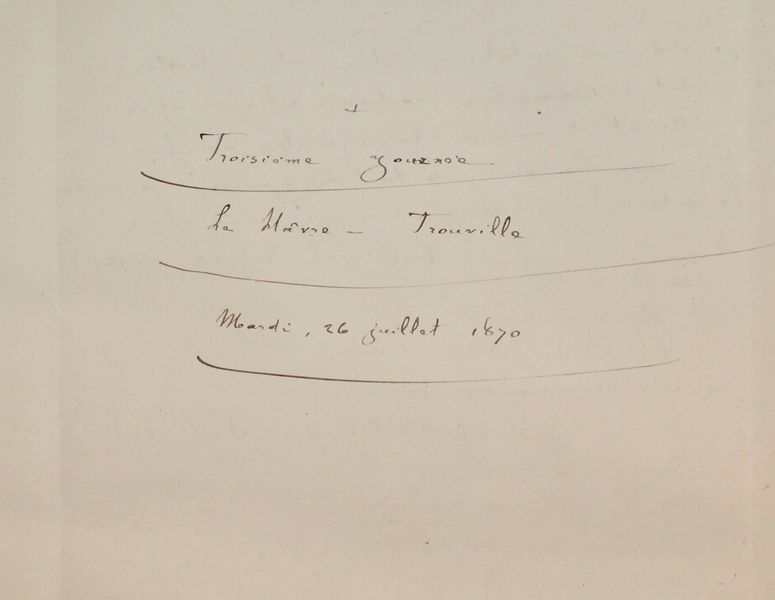 +
Troisième journée
Le Hâvre – Trouville
Mardi, 26 juillet 1870